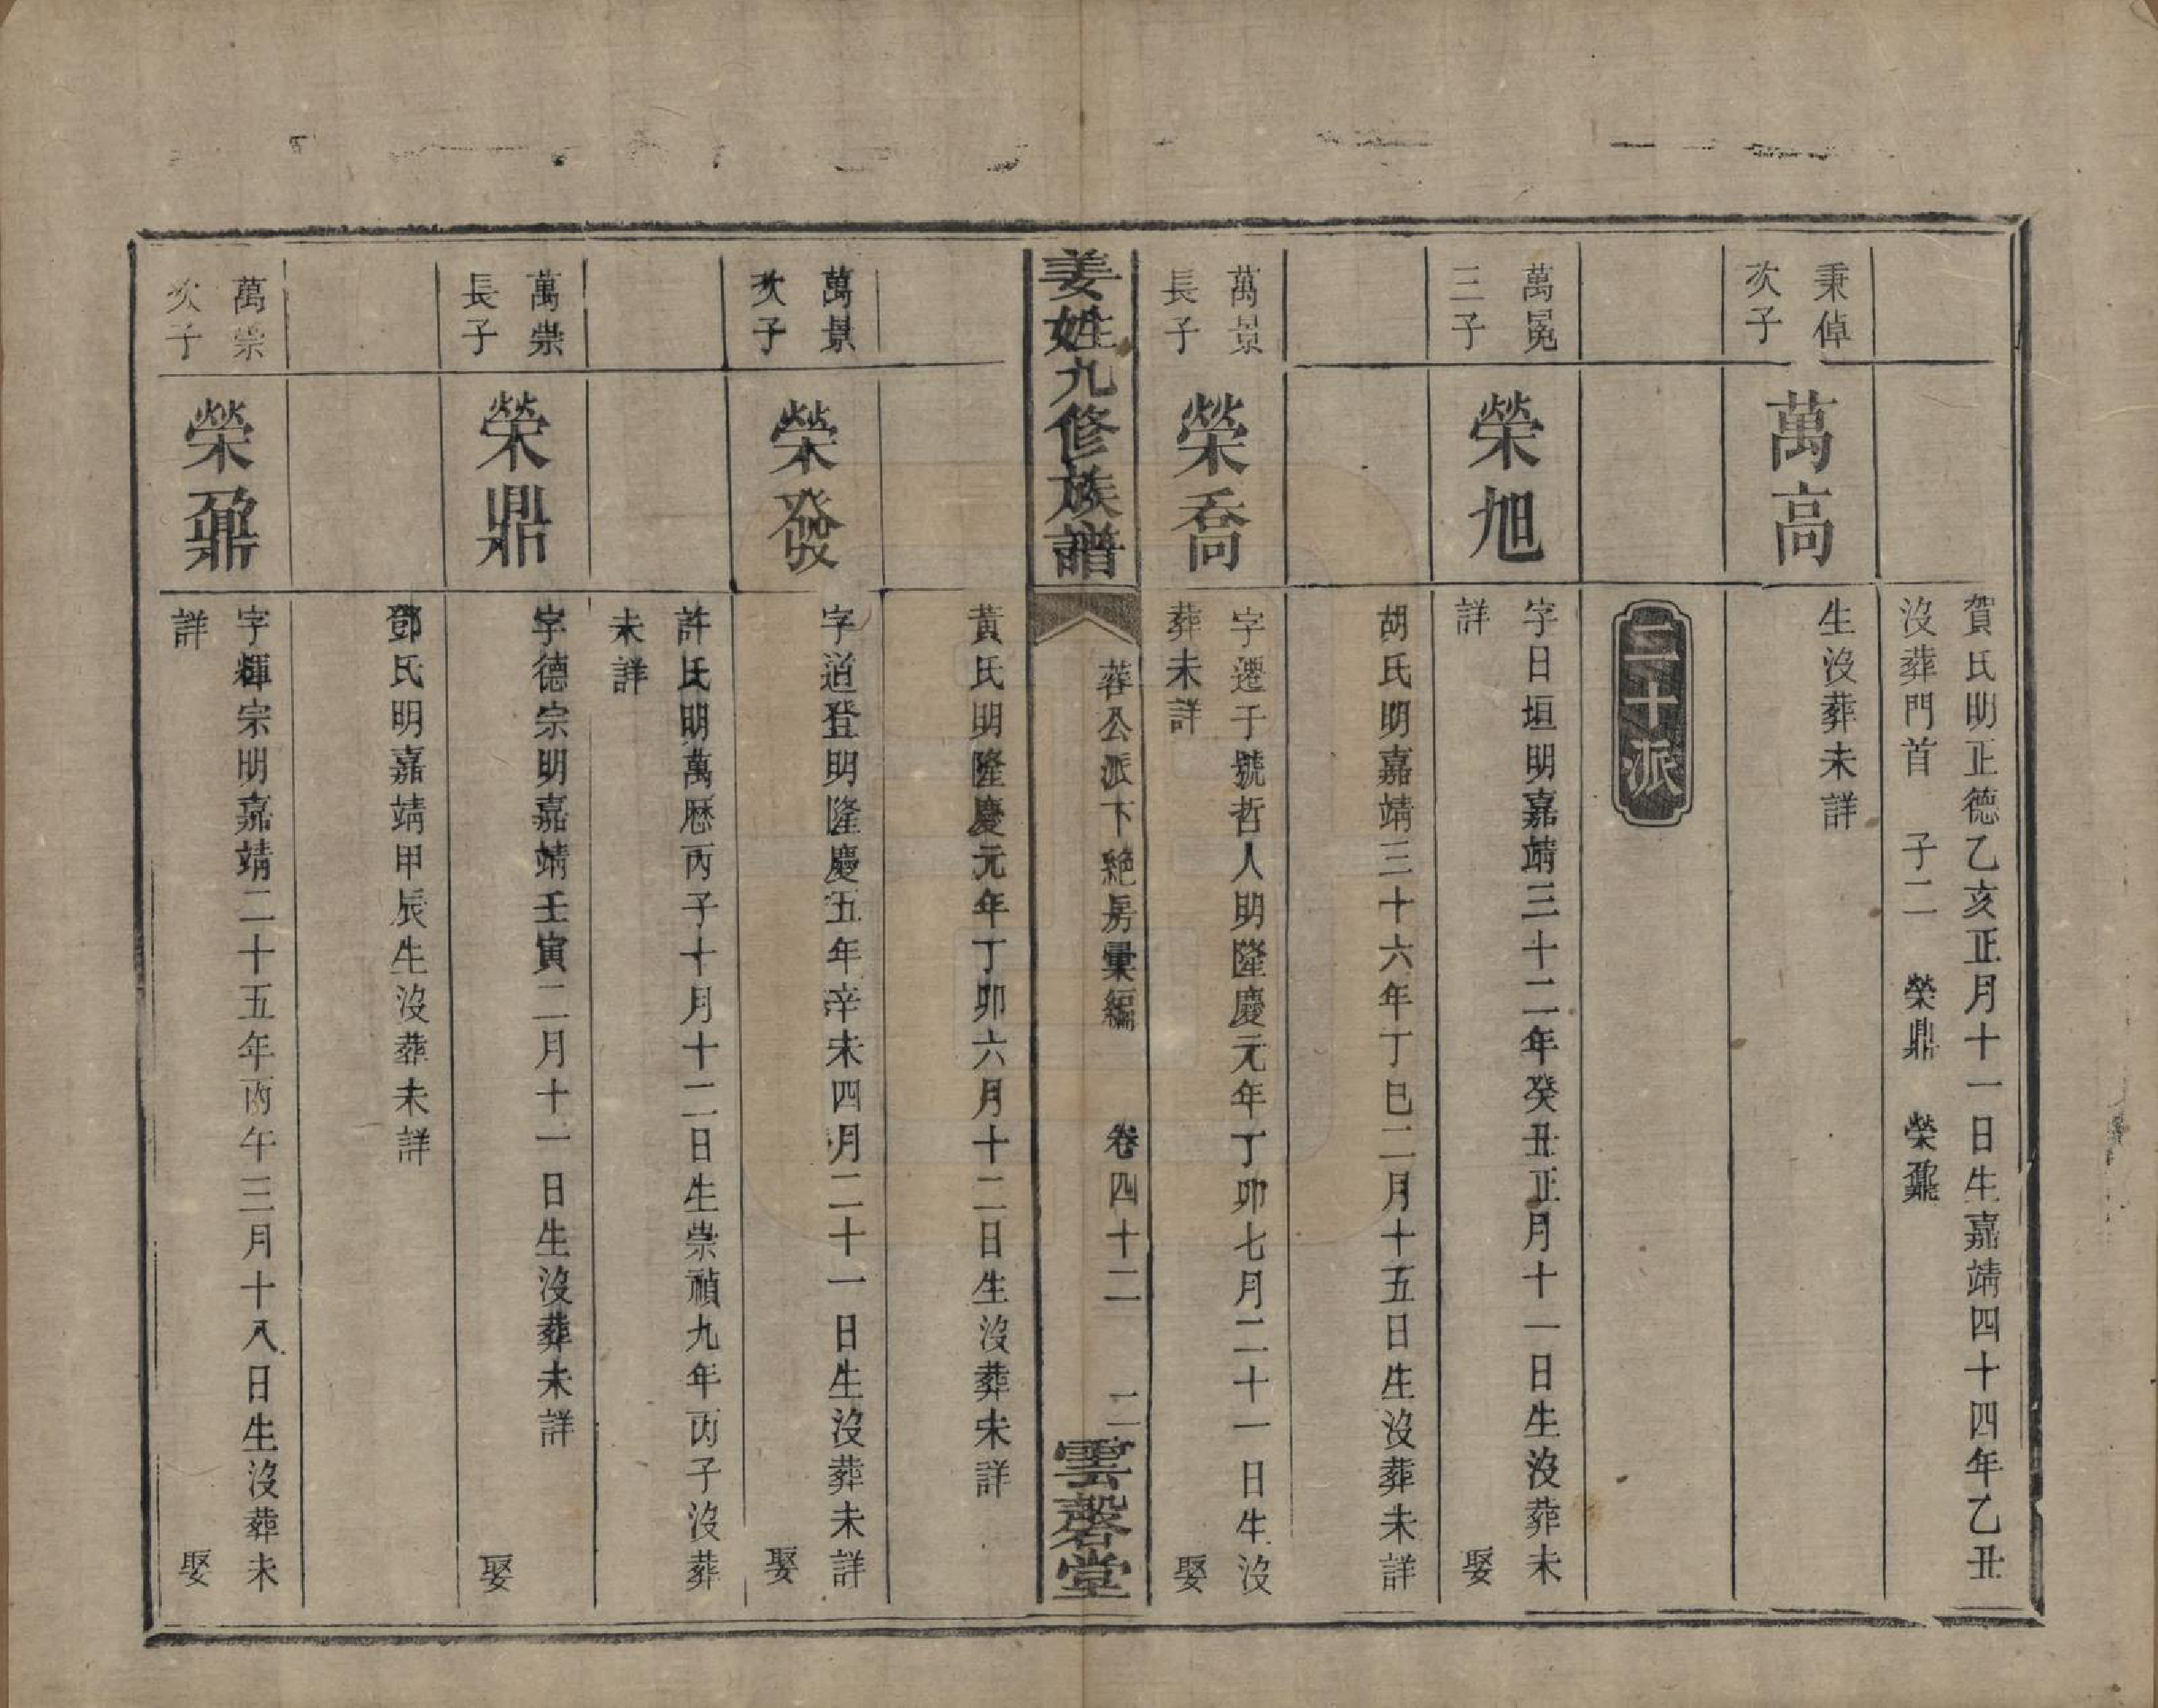 賀氏明正德乙亥正月十一日生嘉靖四十四年乙丑
沒葬門首　子二　榮鼎　榮鼐
秉倬
次子
萬高
生沒葬未詳
二十派
萬冕
三子
榮旭
字日垣明嘉靖三十二年癸丑正月十一日生沒葬未
詳　娶
胡氏明嘉靖三十六年丁巳二月十五日生沒葬未詳
萬景
長子
榮喬
字遷于號哲人明隆慶元年丁卯七月二十一日生沒
葬未詳　娶
姜姓九修族譜
蓉公派下絕房彙編　卷四十二　二
雲磬堂
黃氏明隆慶元年丁卯六月十二日生沒葬未詳
萬景
次子
榮發
字道登明隆慶五年辛未四月二十一日生沒葬未詳
娶
許氏明萬歷丙子十月十二日生崇禎九年丙子沒葬
未詳
萬崇
長子
榮鼎
字德宗明嘉靖壬寅二月十一日生沒葬未詳
娶
鄧氏明嘉靖甲辰生沒葬未詳
萬崇
次子
榮鼐
字輝宗明嘉靖二十五年丙午三月十八日生沒葬未
詳　娶